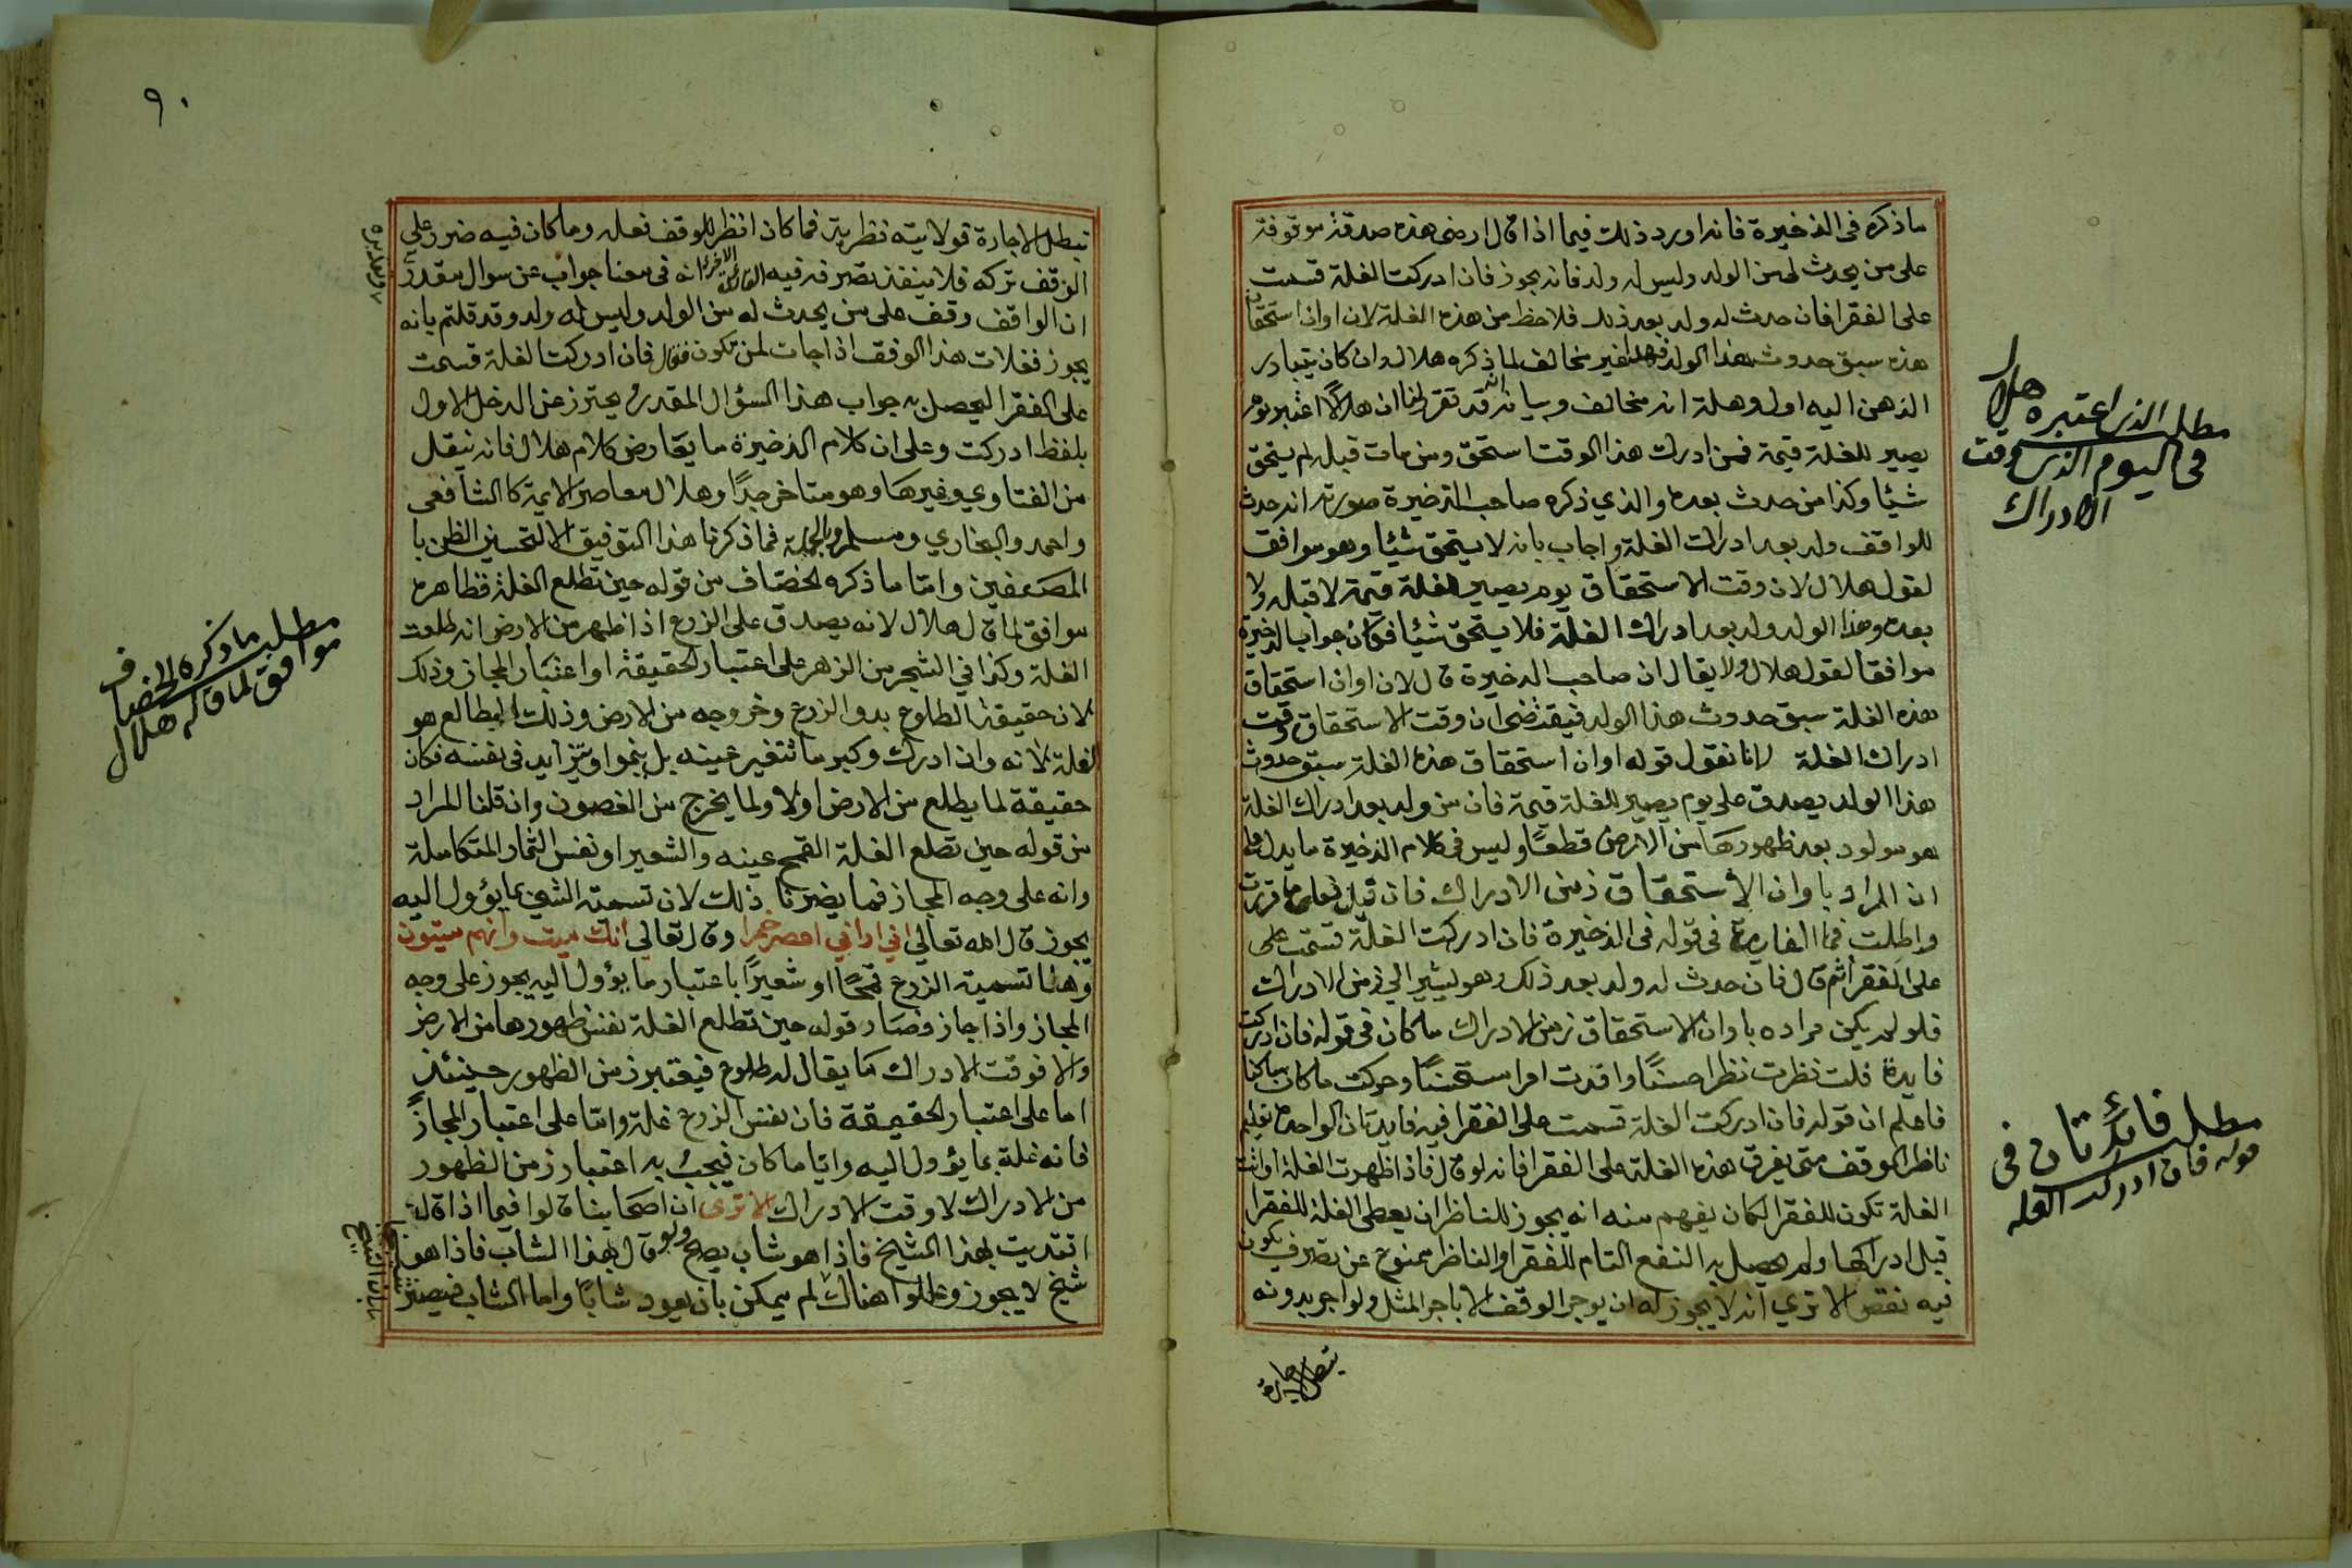 ما ذكره في الذخيرة فانه اورد ذلك فيما اذا قال ارضي هذه صدقة موقوفة
على من يحدث لي من الولد وليس له ولد فانه يجوز فان ادركت الغلة قسمت
على الفقرا فان حدث له ولد بعد ذلك فلا حظ من هذه الغلة لان اوان استحقاق
هذه سبق حدوث هذا الولد فهذا غير مخالف لما ذكره هلال وان كان يتبادر
الذهن اليه اول وهلة انه مخالف وبيانه انه قد تقرر لنا ان هلالًا اعتبر يوم
يصير للغلة قيمة فمن ادرك هذا الوقت استحق ومن مات قبله لم يستحق
شيئا وكذا من حدث بعده والذي ذكره صاحب الذخيرة صورته انه حدث
للواقف ولد بعد ادراك الغلة واجاب بانه لا يستحق شيئا وهو موافق
لقول هلال لان وقت الاستحقاق يوم يصير للغلة قيمة لا قبله ولا
بعده وهذا الولد ولد بعد ادراك الغلة فلا يستحق شيئا فكان جواب الذخيرة
موافقا لقول هلال ولا يقال ان صاحب الذخيرة قال لان اوان استحقاق
هذه الغلة سبق حدوث هذا الولد فيقتضي ان وقت الاستحقاق وقت
ادراك الغلة لانا نقول قوله اوان استحقاق هذه الغلة سبق حدوث
هذا الولد يصدق على يوم يصير للغلة قيمة فان من ولد بعد ادراك الغلة
هو مولود بعد ظهورها من الارض قطعًا وليس في كلام الذخيرة ما يدل على
ان المراد باوان الاستحقاق زمن الادراك فان قيل فعلى ما قررت
واطلت فما الفايدة في قوله في الذخيرة فان ادركت الغلة قسمت على
على الفقرا ثم قال فان حدث له ولد بعد ذلك وهو يشير الى زمن الادراك
فلو لم يكن مراده باوان الاستحقاق زمن الادراك ما كان في قوله فان ادركت
فايدة قلت نظرت نظرا حسنًا وافدت امرا مستحسنًا وحركت ما كان ساكنا
فاعلم ان قوله فان ادركت الغلة قسمت على الفقرا فيه فايدتان الواحدة تعليم
ناظر الوقف متى يفرق هذه الغلة على الفقرا فانه لو قال فاذا ظهرت الغلة او اتت
الغلة تكون للفقرا لكان يفهم منه انه يجوز للناظر ان يعطي الغلة للفقرا
قبل ادراكها ولم يحصل به النفع التام للفقرا والناظر ممنوع عن تصرف يكون
فيه نقص الا ترى انه لا يجوز له ان يوجر الوقف الا باجر المثل ولو اجر بدونه
تبطل الاجارة
مطلب الذي اعتبره هلال
في اليوم الذي وقت
الادراك
مطلب فائدتان في
قوله فان ادركت الغلة
٩٠
تبطل الاجارة فولايته نظرية فما كان انظر للوقف فعله وما كان فيه ضرر على
الوقف تركه فلا ينفذ تصرفه فيه الفائدة الاخرى انه في معنا جواب عن سوال مقدر
ان الواقف وقف على من يحدث له من الولد وليس له ولد وقد قلتم بانه
يجوز فغلات هذا الوقف اذا جات لمن تكون فقال فان ادركت الغلة قسمت
على الفقرا ليحصل به جواب هذا السؤال المقدر يحترز عن الدخل الاول
بلفظ ادركت وعلى ان كلام الذخيرة ما يعارض كلام هلال فانه ينقل
من الفتاوي وغيرها وهو متاخر جدًا وهلال معاصر الايمة كالشافعي
واحمد والبخاري ومسلم وبالجملة فما ذكرنا هذا التوفيق الا لتحسين الظن با
المصنفين وامّا ما ذكره الخصّاف من قوله حين تطلع الغلة فظاهره
موافق لما قال هلال لانه يصدق على الزرع اذا ظهر من الارض انه طلعت
الغلة وكذا في الشجر من الزهر على اعتبار الحقيقة او اعتبار المجاز وذلك
لان حقيقة الطلوع بدو الزرع وخروجه من الارض وذلك الطالع هو
الغلة لانه وان ادرك وكبر ما تتغير عينه بل ينمو او يتزايد في نفسه فكان
حقيقة لما يطلع من الارض اولا ولما يخرج من الغصون وان قلنا المراد
من قوله حين تطلع الغلة القمح عينه والشعير او نفس الثمار المتكاملة
وانه على وجه المجاز فما يضرنا ذلك لان تسمية الشي بما يؤول اليه
يجوز قال الله تعالى اني اراني اعصر خمرا وقال تعالى انك ميت وانهم ميتون
وهنا تسمية الزرع قمحًا او شعيرًا باعتبار ما يؤول اليه يجوز على وجه
المجاز واذا جاز وصار قوله حين تطلع الغلة نفس ظهورها من الارض
والا فوقت الادراك ما يقال له طلوع فيعتبر زمن الظهور حينئذ
اما على اعتبار الحقيقة فان نفس الزرع غلة وامّا على اعتبار المجاز
فانه غلة بما يؤول اليه وايا ما كان فيجب به اعتبار زمن الظهور
من الادراك لا وقت الادراك الا ترى ان اصحابنا قالوا فيما اذا قال
اقتديت بهذا الشيخ فاذا هو شاب يصح ولو قال بهذا الشاب فاذا هو
شيخ لا يجوز وعللوا هناك لم يمكن بان يعود شابًا واما الشاب فيصير
مطلب ما ذكره الخصاف
موافق لما قاله هلال